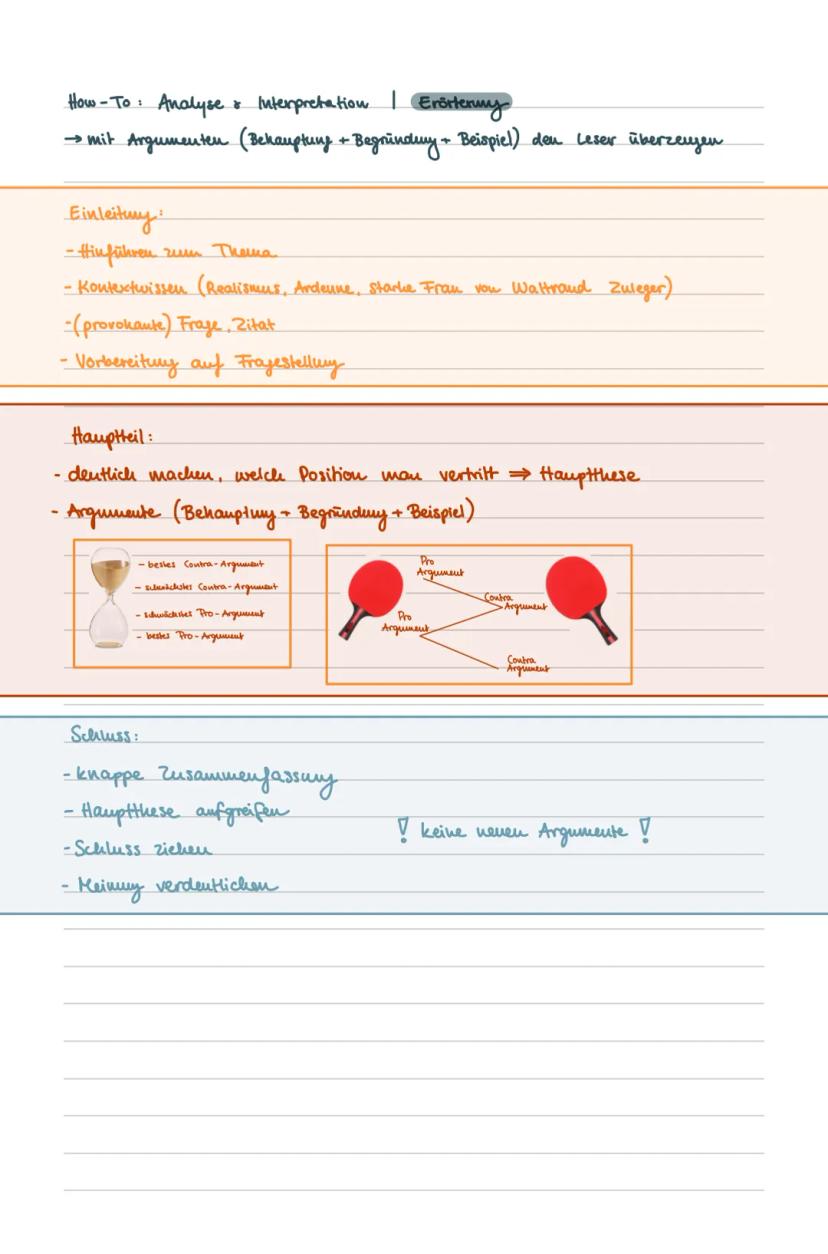 How-To: Analyse & Interpretation | Erörterung
→ mit Argumenten (Behauptung + Begründung + Beispiel) den Leser überzeugen
Einleitung:
- Hinführen zum Thema
- Kontextwissen (Realismus, Ardenne, starke Frau von Waltraud Zuleger)
- (provokante) Frage, Zitat
- Vorbereitung auf Fragestellung
Hauptteil:
- deutlich machen, welch Position man vertritt ⇒ Hauptthese
- Argumente (Behauptung + Begründung + Beispiel)
- bestes Contra-Argument
- schwächstes Contra-Argument
- schwächstes Pro-Argument
- bestes Pro-Argument
Pro
Argument
Contra
Argument
Pro
Argument
Contra
Argument
Schluss:
- knappe Zusammenfassung
- Hauptthese aufgreifen
! keine neuen Argumente !
- Schluss ziehen
- Meinung verdeutlichen